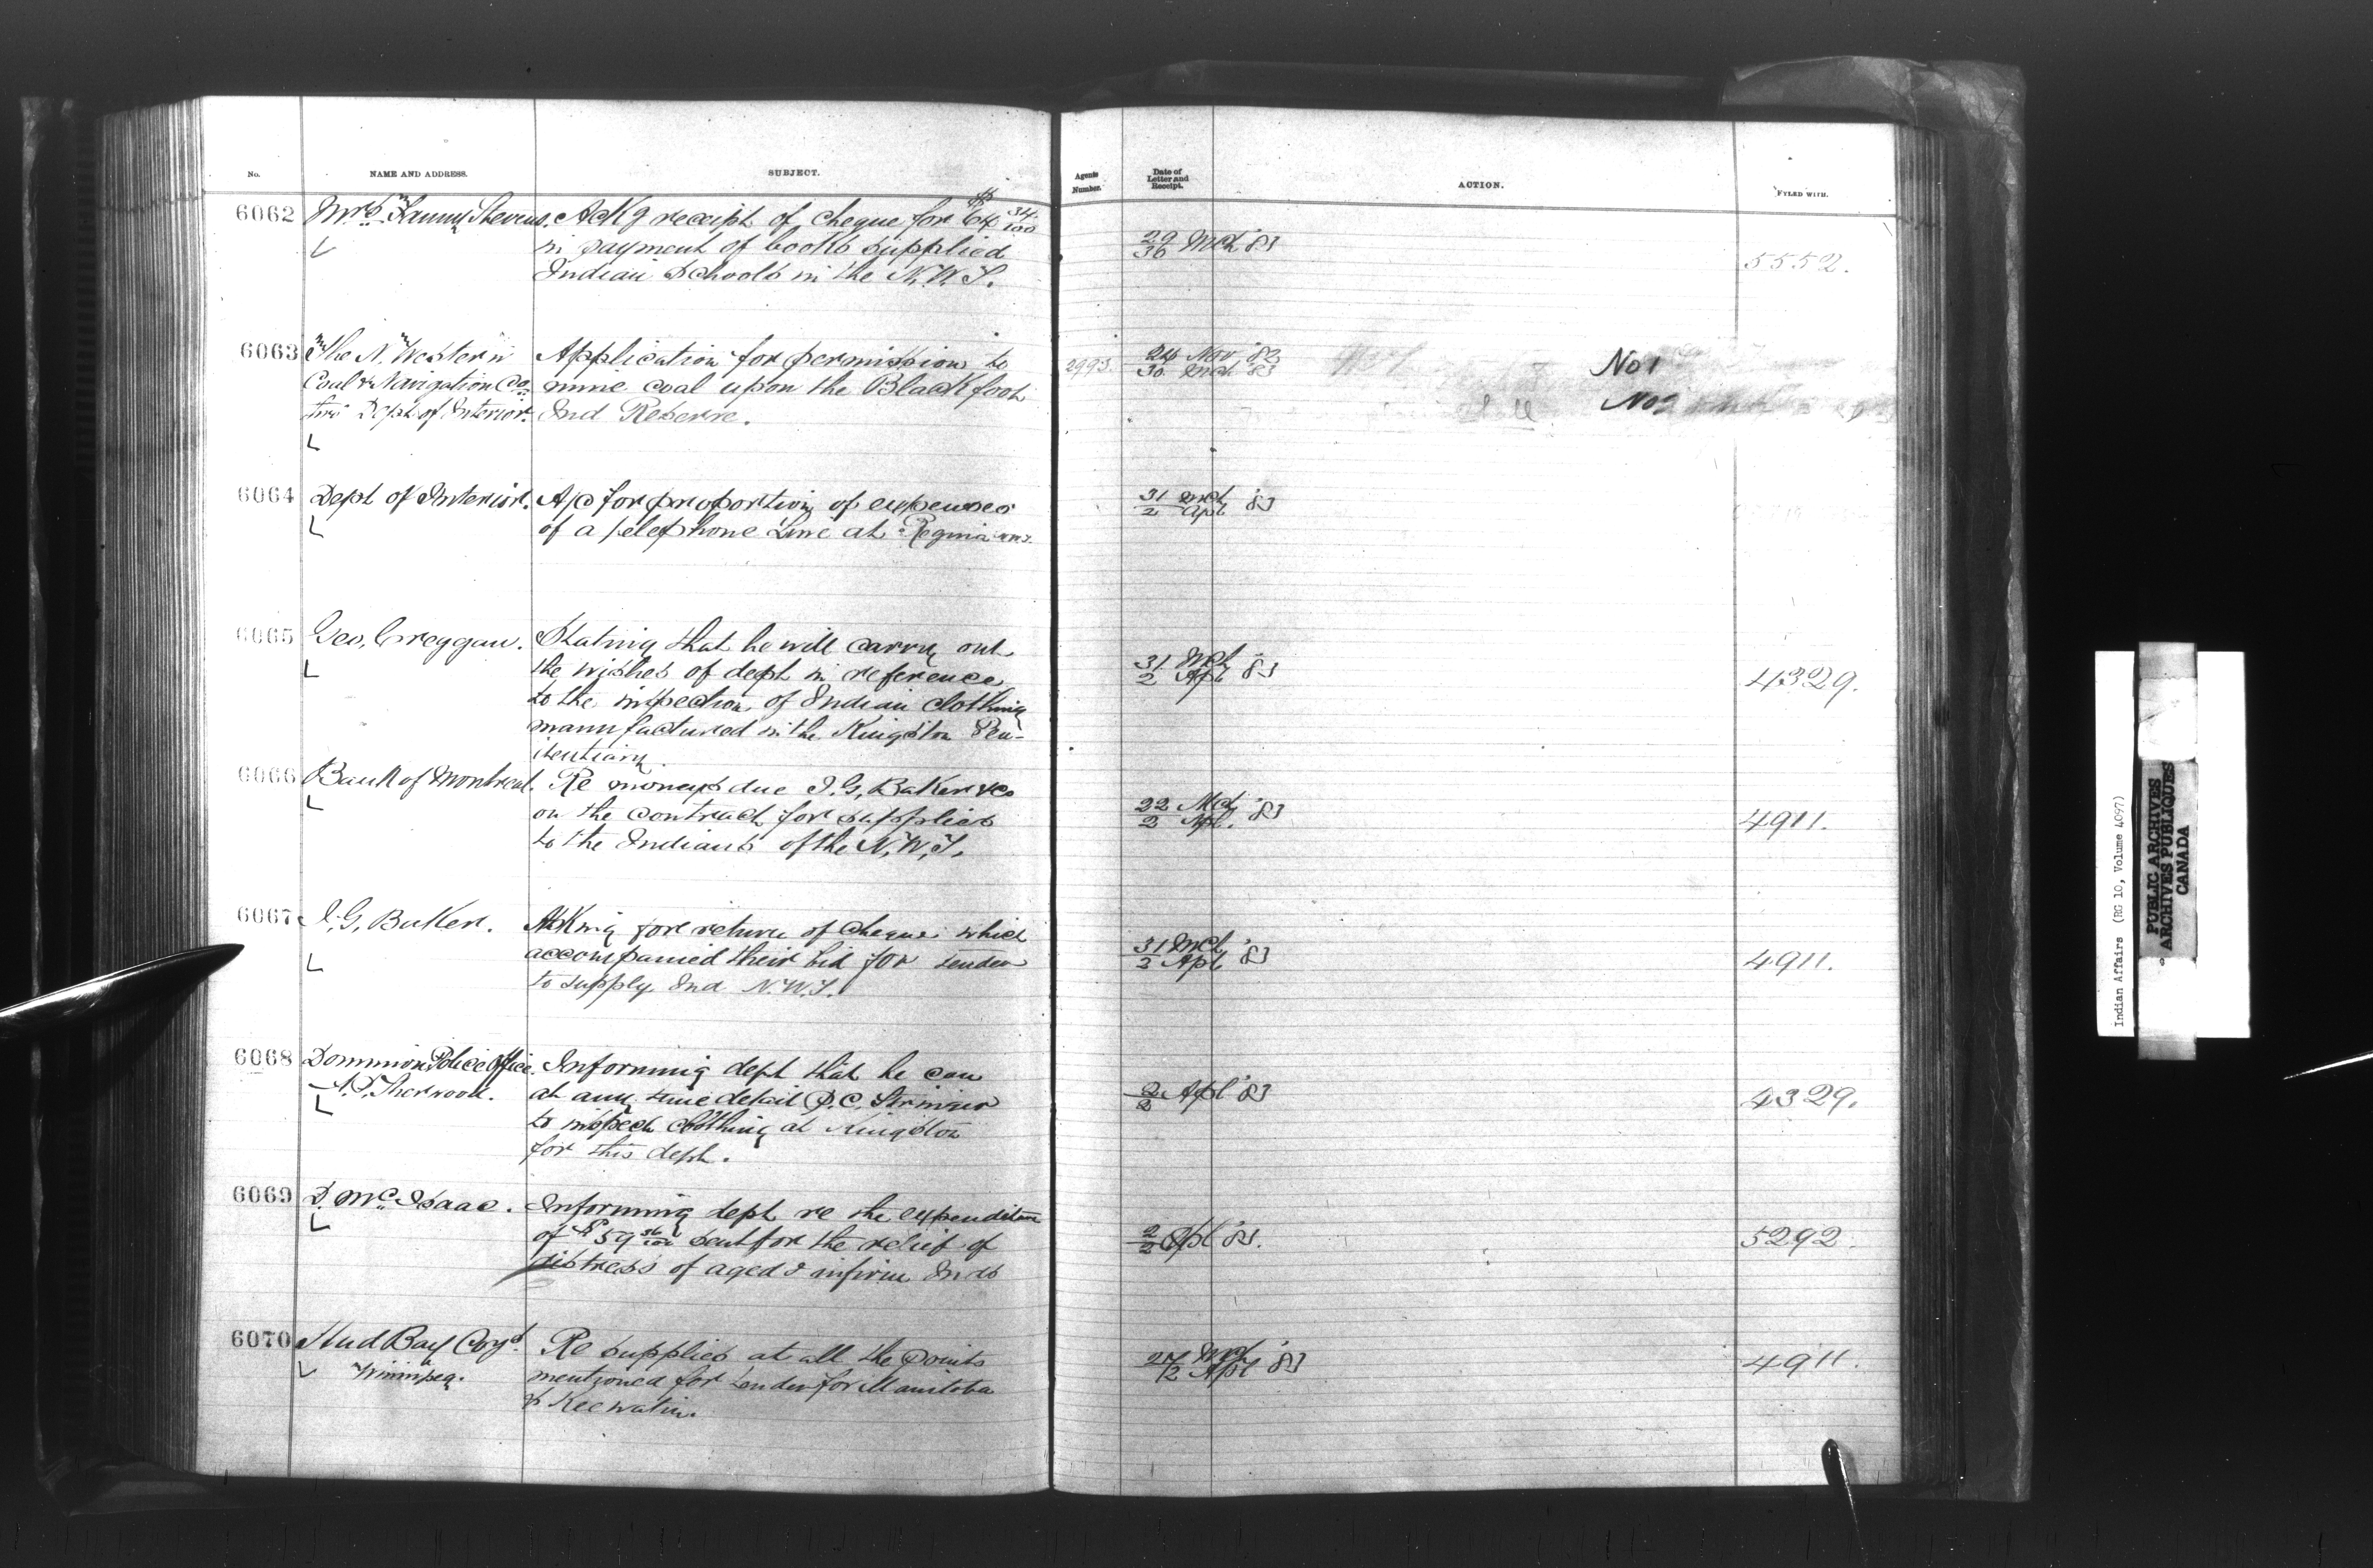 No. NAME AND ADDRESS. SUBJECT. Agents Number. Date of Letter and Receipt. ACTION. FYLED WITH.
6062 Mrs. Fanny Stevens. Ackg receipt of cheque for $64 34/100
in payment of books supplied 29/30 Mch '83
Indian Schools in the N.W.T. 5552.
6063 The N. Western Application for permission to 2993. 24 Nov '82 No 1
Coal & Navigation Co. mine coal upon the Blackfoot 30 Mch '83
thro Dept of Interior. Ind Reserve. No 2
6064 Dept of Interior. A/c for proportion of expenses 31 Mch
of a telephone Line at Regina NWT. 2 Apl '83
6065 Geo. Creggan. Stating that he will carry out
the wishes of dept in reference 31 Mch
to the inspection of Indian clothing 2 Apl '83 4329.
manufactured in the Kingston Pen-
itentiary.
6066 Bank of Montreal. Re moneys due I.G. Baker & Co
on the contract for supplies 22 Mch
to the Indians of the N.W.T. 2 Apl. '83 4911.
6067 I.G. Baker. Asking for return of cheque which
accompanied their bid for tender 31 Mch
to supply Ind N.W.T. 2 Apl '83 4911.
6068 Dominion Police Office. Informing dept that he can
A.P. Sherwood. at any time detail P.C. 2/2 Apl '83 4329.
to inspect clothing at Kingston
for this dept.
6069 D. McIsaac. Informing dept re the expenditure
of $59 36/100 sent for the relief of 2/2 Apl '83. 5292.
distress of aged & infirm Inds
6070 Hud Bay Coy. Re supplies at all the points
Winnipeg. mentioned for tender for Manitoba 27 Mch
& Keewatin. 2 Apl '83 4911.
Indian Affairs (RG 10, Volume 4097)
PUBLIC ARCHIVES
ARCHIVES PUBLIQUES
CANADA